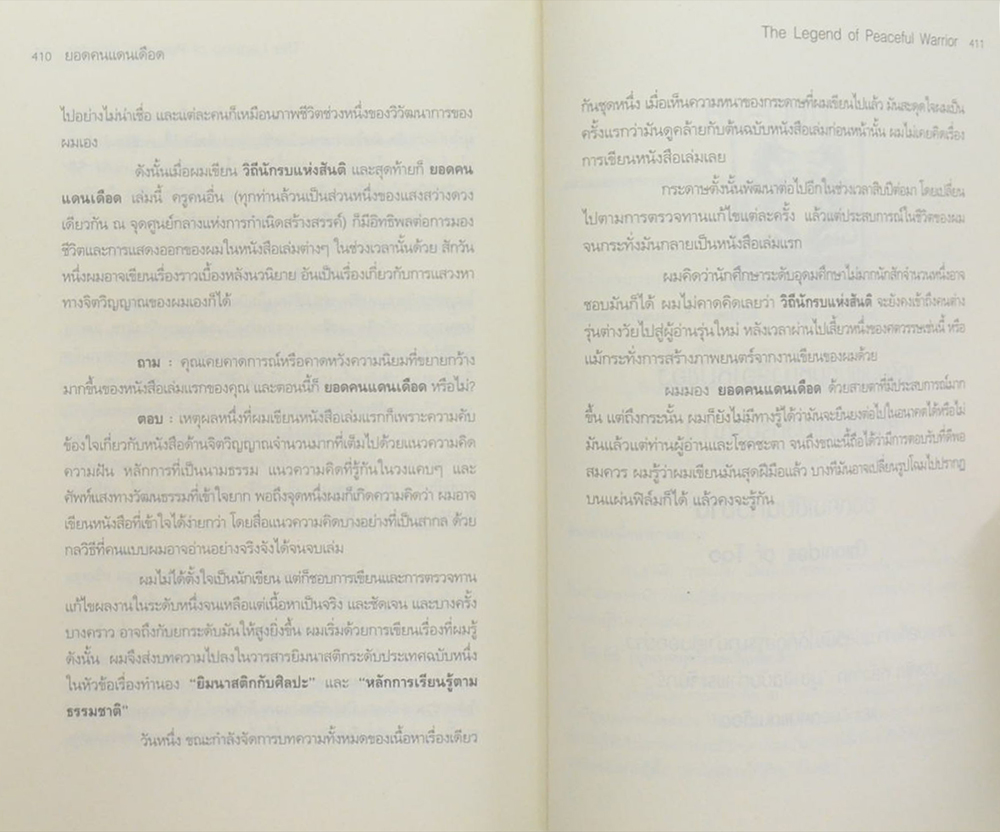 410 ยอดคนแดนเดือด
ไปอย่างไม่น่าเชื่อ และแต่ละคนก็เหมือนภาพชีวิตช่วงหนึ่งของวิวัฒนาการของ
ผมเอง
ดังนั้นเมื่อผมเขียน วิถีนักรบแห่งสันติ และสุดท้ายก็ ยอดคน
แดนเดือด เล่มนี้ ครูคนอื่น (ทุกท่านล้วนเป็นส่วนหนึ่งของแสงสว่างดวง
เดียวกัน ณ จุดศูนย์กลางแห่งการกำเนิดสร้างสรรค์) ก็มีอิทธิพลต่อการมอง
ชีวิตและการแสดงออกของผมในหนังสือเล่มต่างๆ ในช่วงเวลานั้นด้วย สักวัน
หนึ่งผมอาจเขียนเรื่องราวเบื้องหลังนวนิยาย อันเป็นเรื่องเกี่ยวกับการแสวงหา
ทางจิตวิญญาณของผมเองก็ได้
ถาม : คุณเคยคาดการณ์หรือคาดหวังความนิยมที่ขยายกว้าง
มากขึ้นของหนังสือเล่มแรกของคุณ และตอนนี้ก็ ยอดคนแดนเดือด หรือไม่?
ตอบ : เหตุผลหนึ่งที่ผมเขียนหนังสือเล่มแรกก็เพราะความคับ
ข้องใจเกี่ยวกับหนังสือด้านจิตวิญญาณจำนวนมากที่เต็มไปด้วยแนวความคิด
ความฝัน หลักการที่เป็นนามธรรม แนวความคิดที่รู้กันในวงแคบๆ และ
ศัพท์แสงทางวัฒนธรรมที่เข้าใจยาก พอถึงจุดหนึ่งผมก็เกิดความคิดว่า ผมอาจ
เขียนหนังสือที่เข้าใจได้ง่ายกว่า โดยสื่อแนวความคิดบางอย่างที่เป็นสากล ด้วย
กลวิธีที่คนแบบผมอาจอ่านอย่างจริงจังได้จนจบเล่ม
ผมไม่ได้ตั้งใจเป็นนักเขียน แต่ก็ชอบการเขียนและการตรวจทาน
แก้ไขผลงานในระดับหนึ่งจนเหลือแต่เนื้อหาเป็นจริง และชัดเจน และบางครั้ง
บางคราว อาจถึงกับยกระดับมันให้สูงยิ่งขึ้น ผมเริ่มด้วยการเขียนเรื่องที่ผมรู้
ดังนั้น ผมจึงส่งบทความไปลงในวารสารยิมนาสติกระดับประเทศฉบับหนึ่ง
ในหัวข้อเรื่องทำนอง "ยิมนาสติกกับศิลปะ" และ "หลักการเรียนรู้ตาม
ธรรมชาติ"
วันหนึ่ง ขณะกำลังจัดการบทความทั้งหมดของเนื้อหาเรื่องเดียว
The Legend of Peaceful Warrior 411
กันชุดหนึ่ง เมื่อเห็นความหนาของกระดาษที่ผมเขียนไปแล้ว มันสะดุดใจผมเป็น
ครั้งแรกว่ามันดูคล้ายกับต้นฉบับหนังสือเล่มก่อนหน้านั้น ผมไม่เคยคิดเรื่อง
การเขียนหนังสือเล่มเลย
กระดาษตั้งนั้นพัฒนาต่อไปอีกในช่วงเวลาสิบปีต่อมา โดยเปลี่ยน
ไปตามการตรวจทานแก้ไขแต่ละครั้ง แล้วแต่ประสบการณ์ในชีวิตของผม
จนกระทั่งมันกลายเป็นหนังสือเล่มแรก
ผมคิดว่านักศึกษาระดับอุดมศึกษาไม่มากนักสักจำนวนหนึ่งอาจ
ชอบมันก็ได้ ผมไม่คาดคิดเลยว่า วิถีนักรบแห่งสันติ จะยังคงเข้าถึงคนต่าง
รุ่นต่างวัยไปสู่ผู้อ่านรุ่นใหม่ หลังเวลาผ่านไปเสี้ยวหนึ่งของศตวรรษเช่นนี้ หรือ
แม้กระทั่งการสร้างภาพยนตร์จากงานเขียนของผมด้วย
ผมมอง ยอดคนแดนเดือด ด้วยสายตาที่มีประสบการณ์มาก
ขึ้น แต่ถึงกระนั้น ผมก็ยังไม่มีทางรู้ได้ว่ามันจะยืนยงต่อไปในอนาคตได้หรือไม่
มันแล้วแต่ท่านผู้อ่านและโชคชะตา จนถึงขณะนี้ถือได้ว่ามีการตอบรับที่ดีพอ
สมควร ผมรู้ว่าผมเขียนมันสุดฝีมือแล้ว บางทีมันอาจเปลี่ยนรูปโฉมไปปรากฏ
บนแผ่นฟิล์มก็ได้ แล้วคงจะรู้กัน